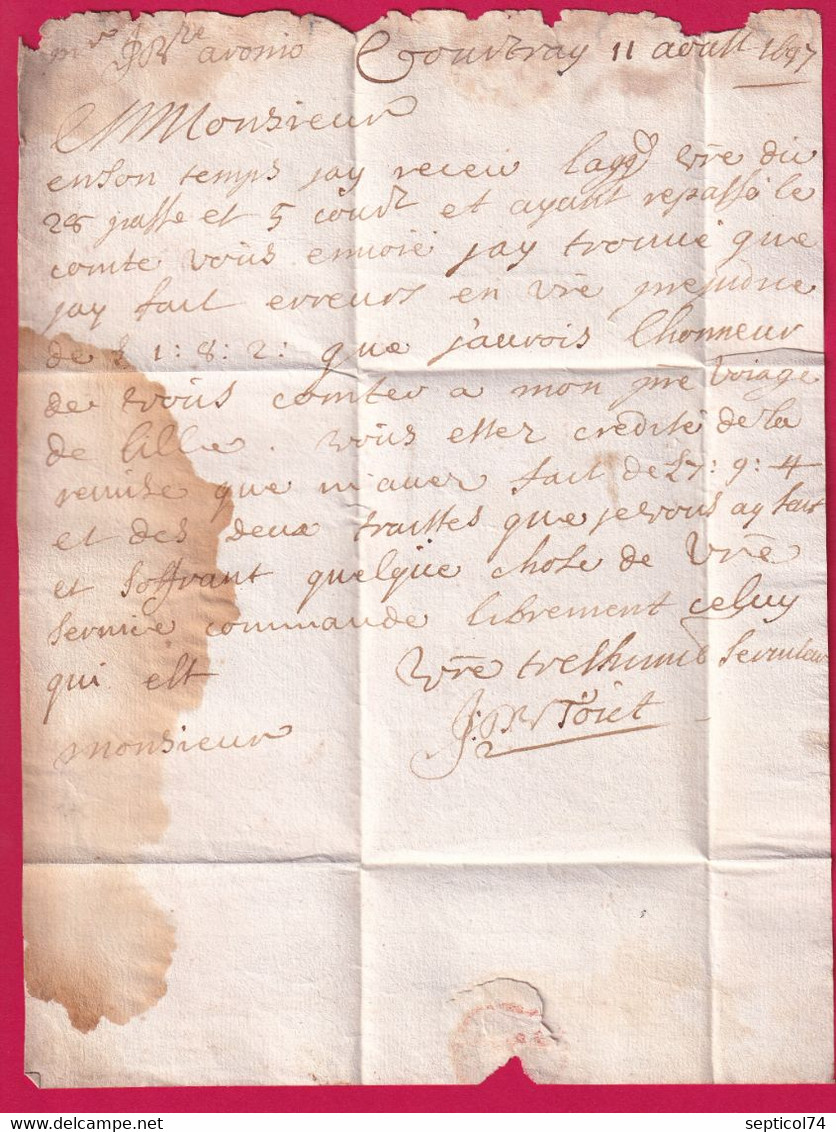 Courtray 11 avvll 1697
Monsieur
enson temps jay receu lagd vre du
28 passe et 5 cour.t et ayant repassé le
comte vous envoié jay trouué que
jay fait erreurs en vre prejudice
de £ 1: 8: 2: que j'aurois lhonneur
de vous comter a mon pre voiage
de lille. vous estes credité de la
remise que m'aues fait de £7: 9: 4
et des deux traittes que jevous ay fait
et soffrant quelque chose de vre
seruice commande librement celuy
qui est vre treshumb seruiteur
monsieur
septicol74
Delcampe.net